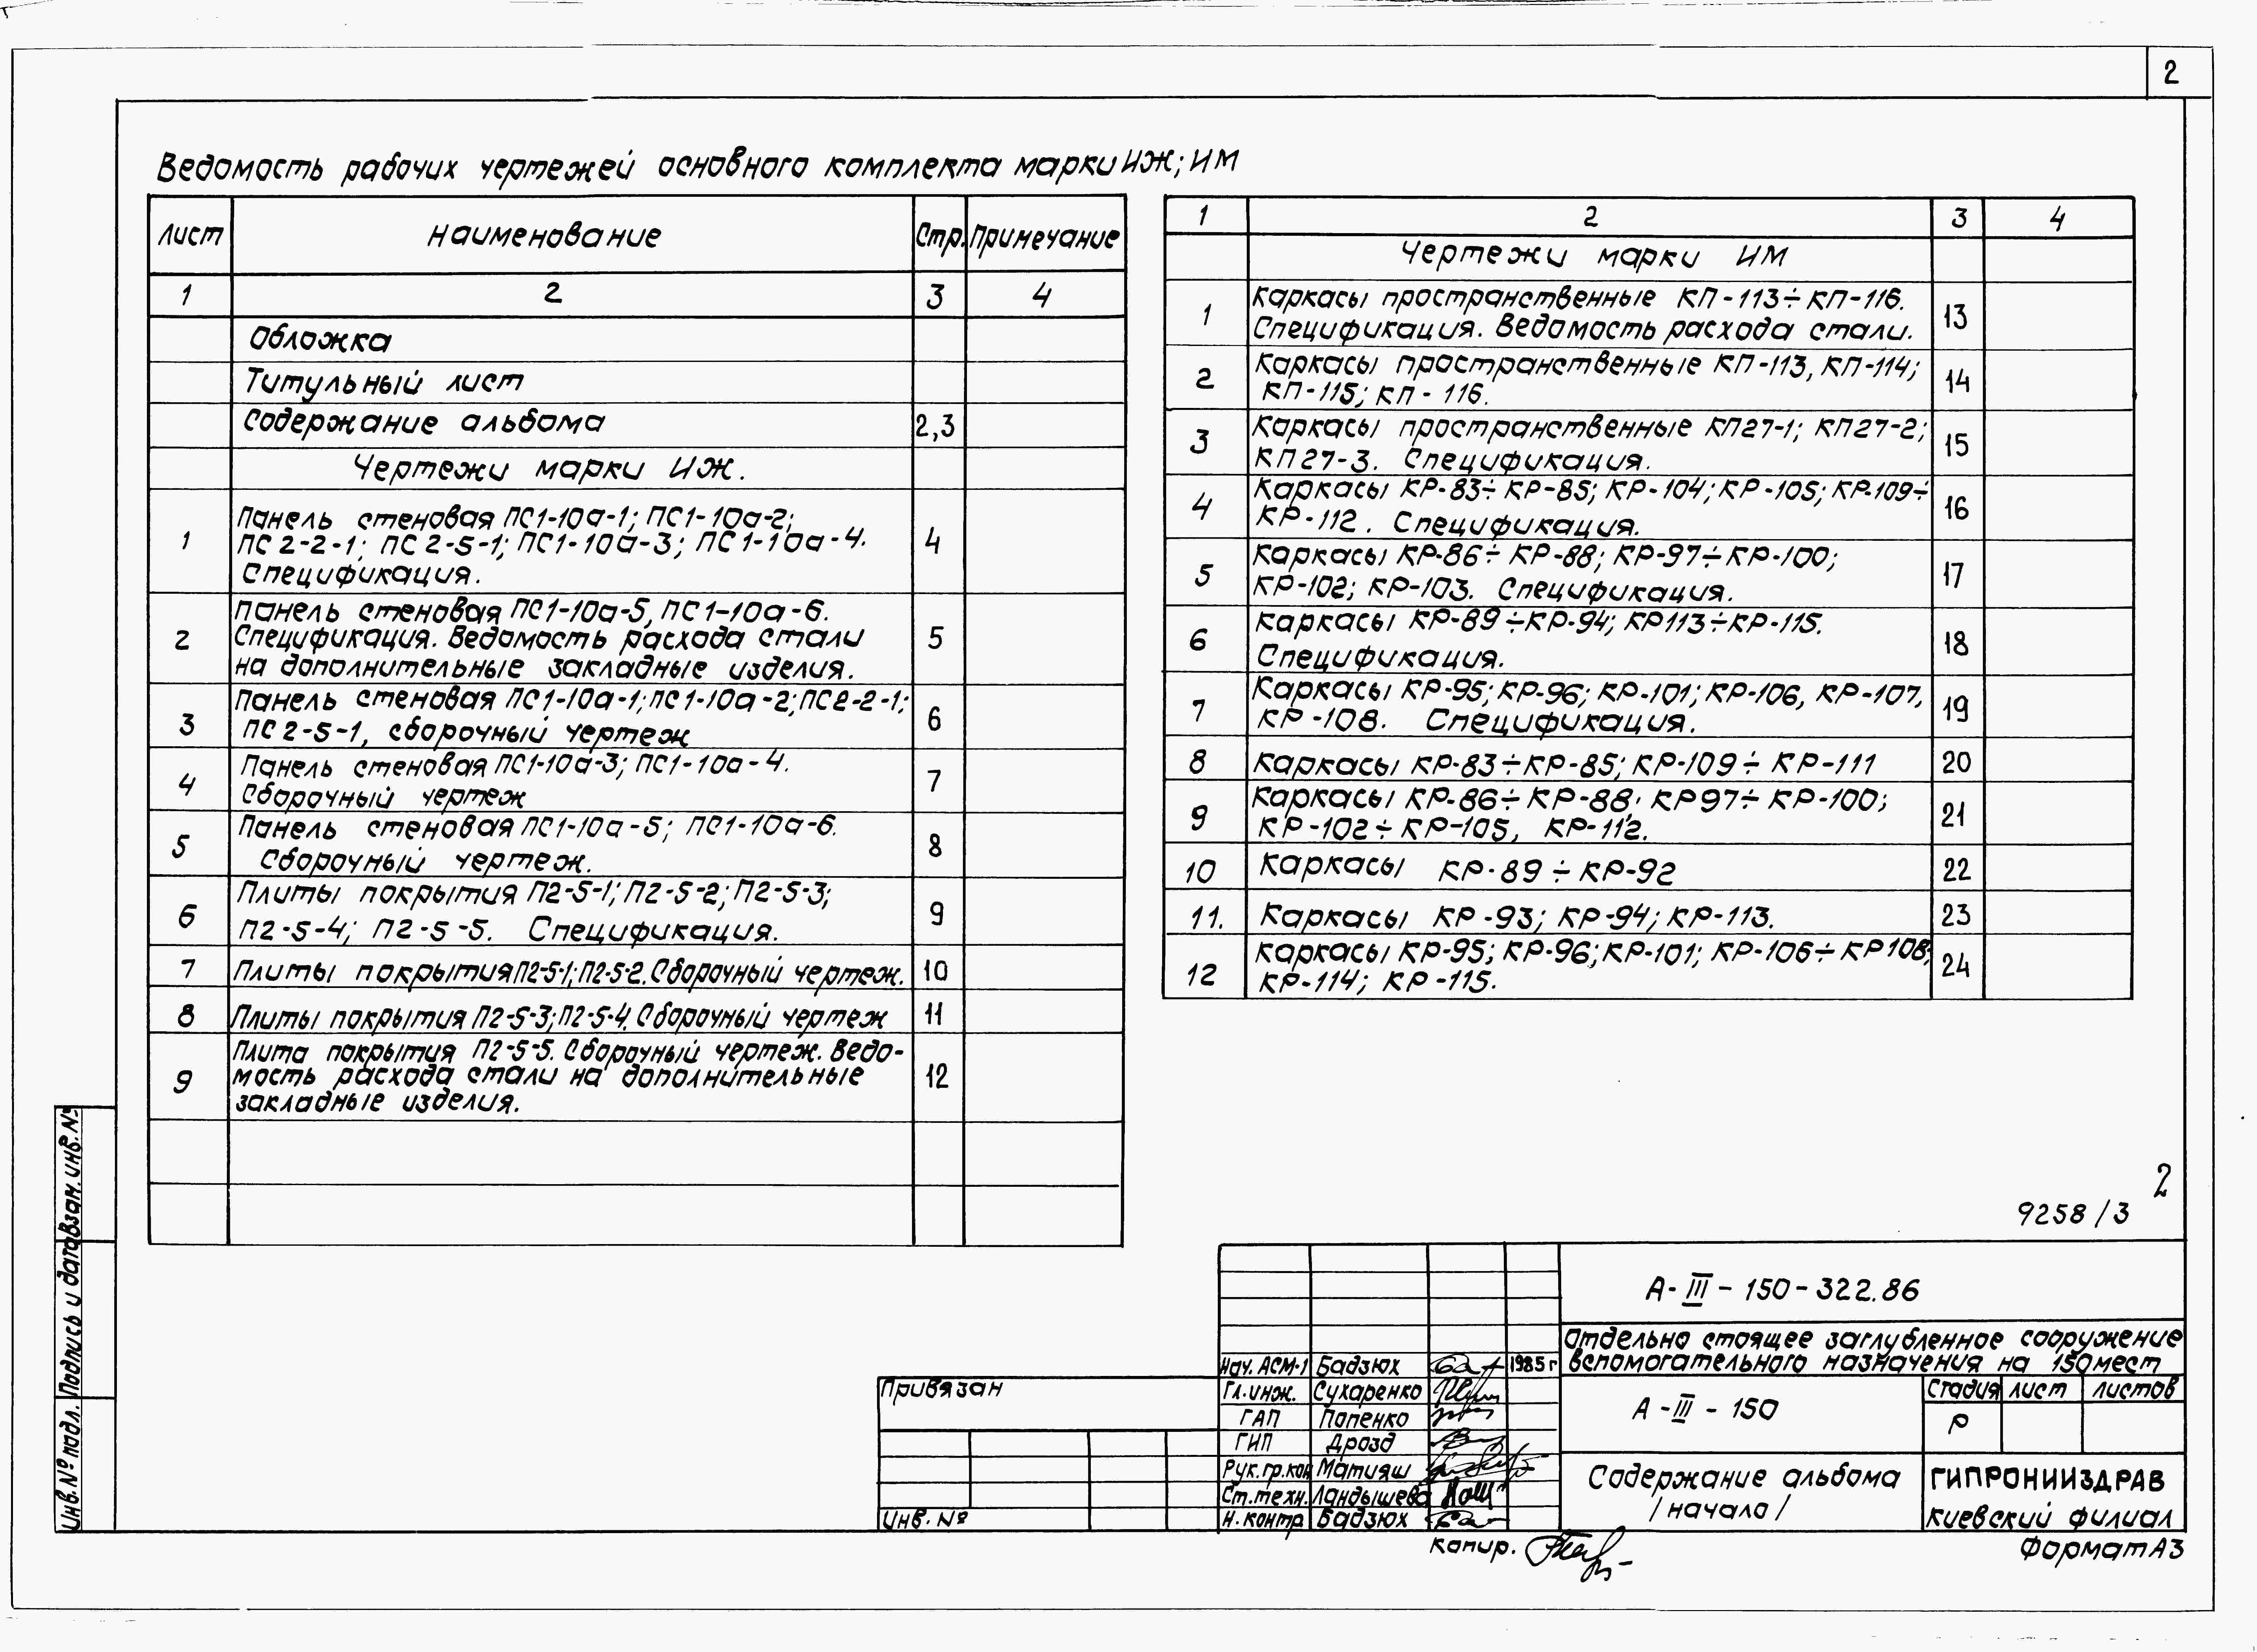 2
Ведомость рабочих чертежей основного комплекта марки ИЖ; ИМ
Лист Наименование Стр. Примечание
1 2 3 4
Обложка
Титульный лист
Содержание альбома 2,3
Чертежи марки ИЖ.
Панель стеновая ПС1-10а-1; ПС1-10а-2;
1 ПС2-2-1; ПС2-5-1; ПС1-10а-3; ПС1-10а-4. 4
Спецификация.
Панель стеновая ПС1-10а-5, ПС1-10а-6.
2 Спецификация. Ведомость расхода стали 5
на дополнительные закладные изделия.
Панель стеновая ПС1-10а-1; ПС1-10а-2; ПС2-2-1;
3 ПС2-5-1, сборочный чертеж 6
Панель стеновая ПС1-10а-3; ПС1-10а-4.
4 Сборочный чертеж 7
Панель стеновая ПС1-10а-5; ПС1-10а-6.
5 Сборочный чертеж. 8
Плиты покрытия П2-5-1; П2-5-2; П2-5-3;
6 П2-5-4; П2-5-5. Спецификация. 9
7 Плиты покрытия П2-5-1; П2-5-2. Сборочный чертеж. 10
8 Плиты покрытия П2-5-3; П2-5-4. Сборочный чертеж 11
Плита покрытия П2-5-5. Сборочный чертеж. Ведо-
9 мость расхода стали на дополнительные 12
закладные изделия.
1 2 3 4
Чертежи марки ИМ
Каркасы пространственные КП-113÷КП-116.
1 Спецификация. Ведомость расхода стали. 13
Каркасы пространственные КП-113, КП-114;
2 КП-115; КП-116. 14
Каркасы пространственные КП27-1; КП27-2;
3 КП27-3. Спецификация. 15
Каркасы КР-83÷КР-85; КР-104; КР-105; КР-109÷
4 КР-112. Спецификация. 16
Каркасы КР-86÷КР-88; КР-97÷КР-100;
5 КР-102; КР-103. Спецификация. 17
Каркасы КР-89÷КР-94; КР113÷КР-115.
6 Спецификация. 18
Каркасы КР-95; КР-96; КР-101; КР-106, КР-107,
7 КР-108. Спецификация. 19
8 Каркасы КР-83÷КР-85; КР-109÷КР-111 20
Каркасы КР-86÷КР-88; КР97÷КР-100;
9 КР-102÷КР-105, КР-112. 21
10 Каркасы КР-89÷КР-92 22
11. Каркасы КР-93; КР-94; КР-113. 23
Каркасы КР-95; КР-96; КР-101; КР-106÷КР108;
12 КР-114; КР-115. 24
2
9258/3
А-III-150-322.86
Отдельно стоящее заглубленное сооружение
вспомогательного назначения на 150 мест
Нач. АСМ-1 Бадзюх 1985 г
Гл. инж. Сухаренко
ГАП Попенко
ГИП Дрозд
Рук. гр. кон Матияш
Ст. техн. Ландышева
Н. контр Бадзюх
А-III-150
Стадия Лист Листов
Р
Содержание альбома
/начало/
ГИПРОНИИЗДРАВ
Киевский филиал
Привязан
Инв. №
Копир.
Формат А3
Инв. № подл. Подпись и дата Взам. инв. №